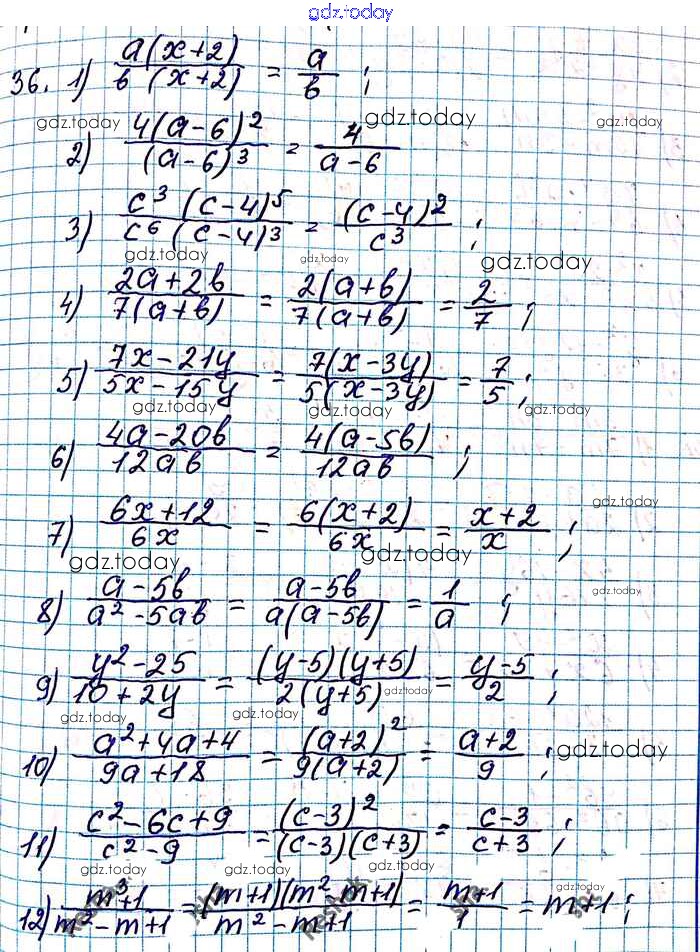 gdz.today
36. 1) a(x+2)/в(x+2) = a/в ;
gdz.today gdz.today gdz.today
2) 4(a-6)^2/(a-6)^3 = 4/(a-6)
3) c^3 (c-4)^5/c^6 (c-4)^3 = (c-4)^2/c^3 ;
gdz.today gdz.today gdz.today
4) (2a+2в)/7(a+в) = 2(a+в)/7(a+в) = 2/7 ;
5) (7x-21y)/(5x-15y) = 7(x-3y)/5(x-3y) = 7/5 ;
gdz.today gdz.today gdz.today
6) (4a-20в)/12aв = 4(a-5в)/12aв ;
gdz.today
7) (6x+12)/6x = 6(x+2)/6x = (x+2)/x ;
gdz.today gdz.today
8) (a-5в)/(a^2-5aв) = (a-5в)/a(a-5в) = 1/a ;
gdz.today
9) (y^2-25)/(10+2y) = (y-5)(y+5)/2(y+5) = (y-5)/2 ;
gdz.today
gdz.today gdz.today
10) (a^2+4a+4)/(9a+18) = (a+2)^2/9(a+2) = (a+2)/9 ;
gdz.today
11) (c^2-6c+9)/(c^2-9) = (c-3)^2/(c-3)(c+3) = (c-3)/(c+3) ;
gdz.today gdz.today gdz.today
12) (m^3+1)/(m^2-m+1) = (m+1)(m^2 m+1)/(m^2-m+1) = (m+1)/1 = m+1 ;
gdz.today